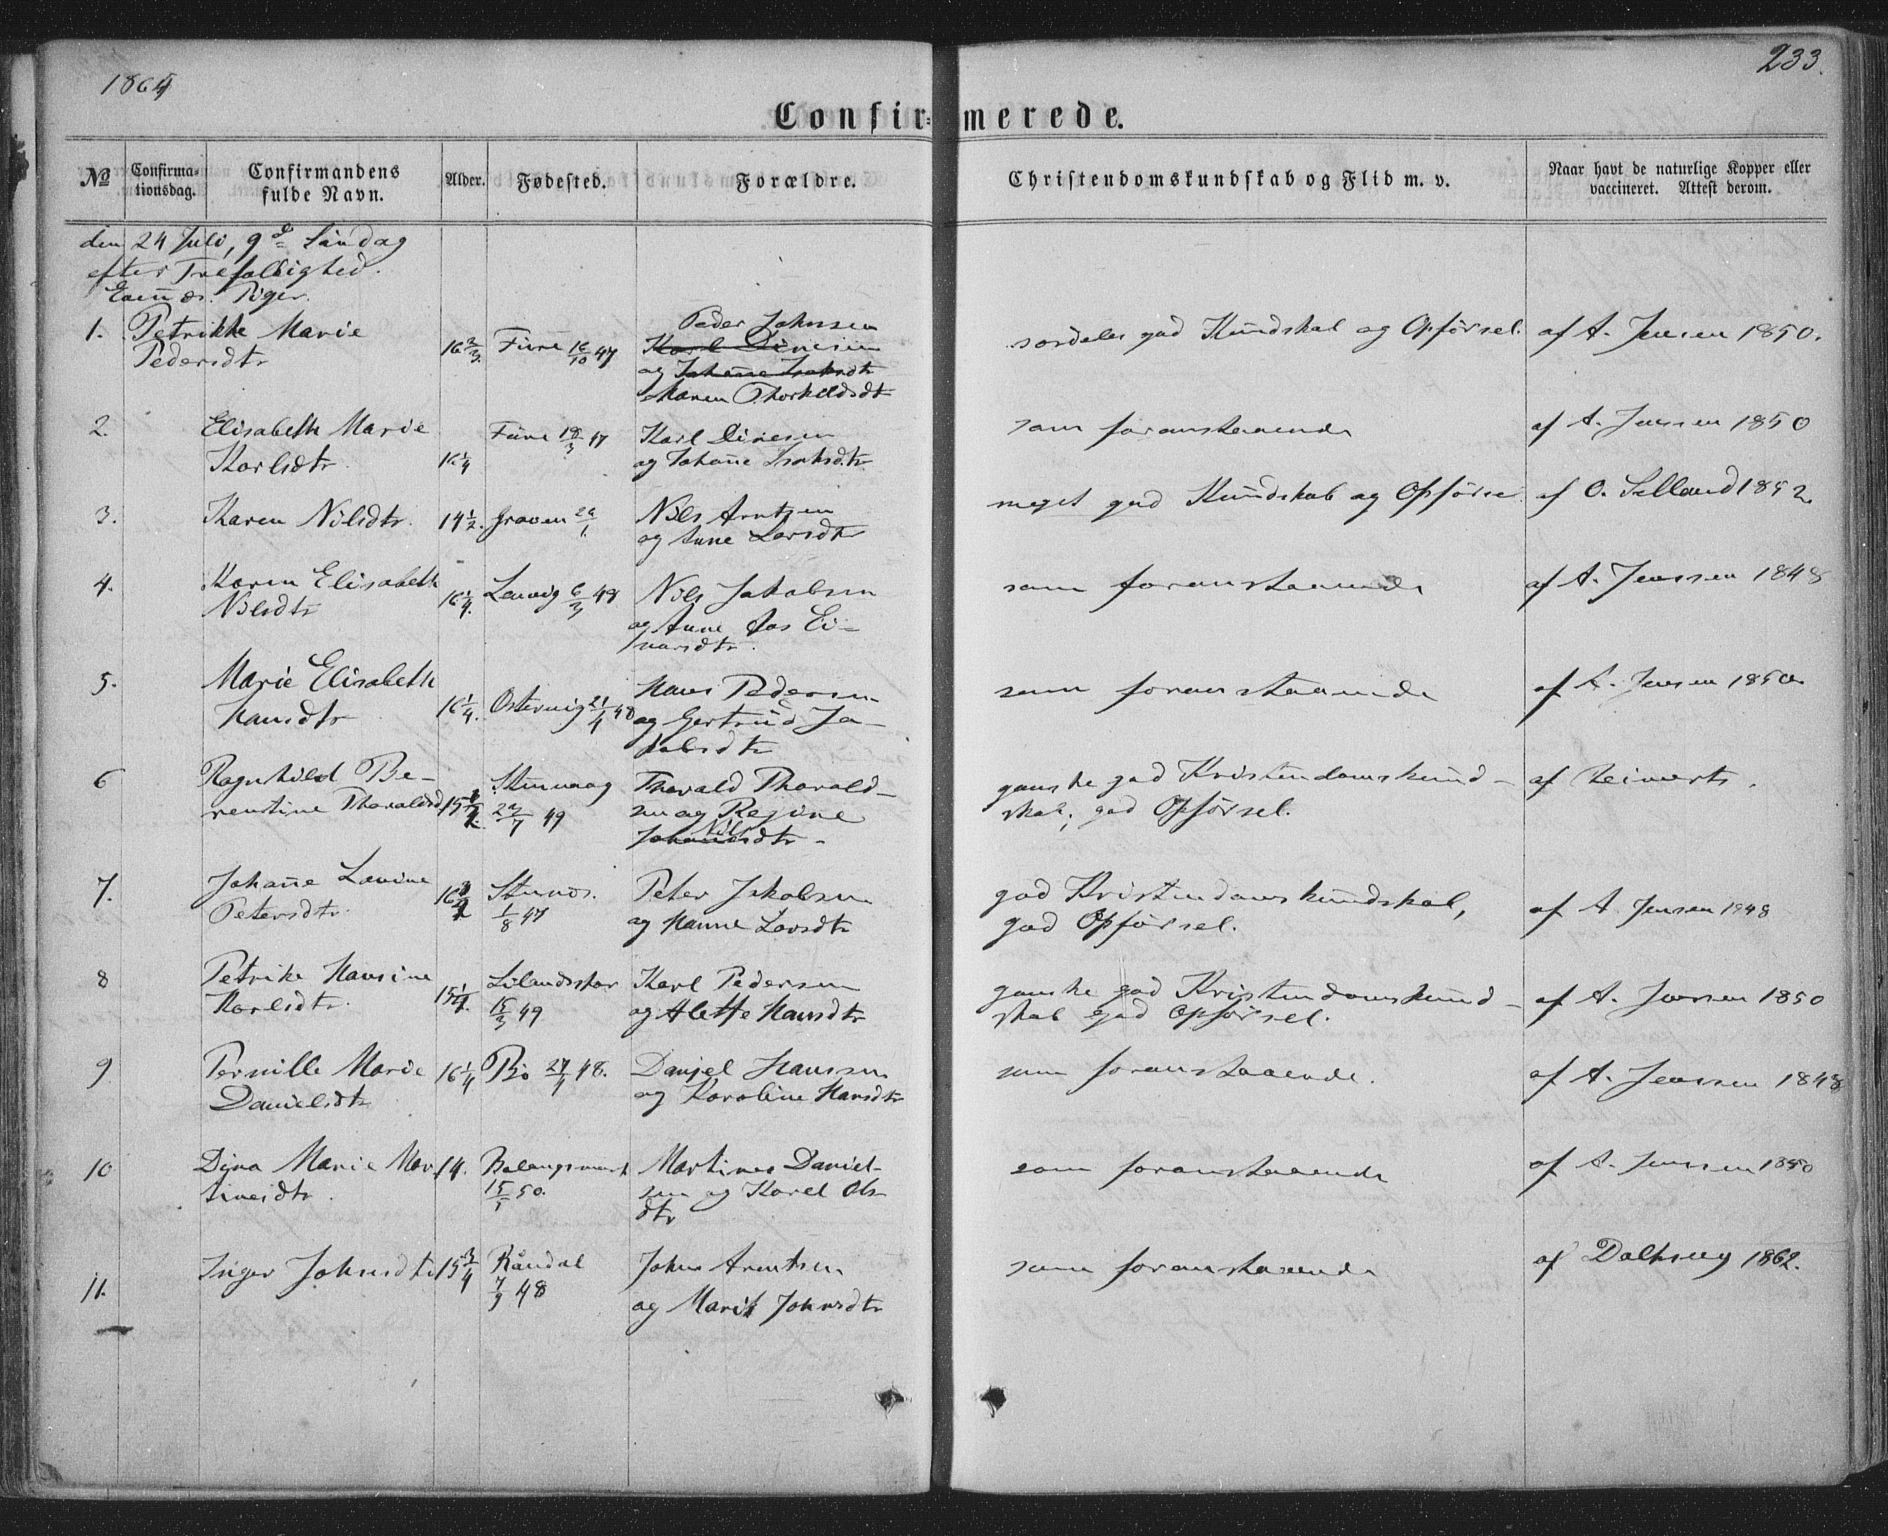 1864
233.
Confir=merede.
No
Confirma-
tionsdag.
Confirmandens
fulde Navn.
Alder.
Fødested.
Forældre.
Christendomskundskab og Flid m. v.
Naar havt de naturlige Kopper eller
vaccineret. Attest derom.
den 24 Juli, 9de Søndag
efter Trefoldighed.
Piger.
1. Petrikke Marie
Pedersdtr
16 2/3. Fure 16/10 47
Peder Johnsen
Karl Dinesen
og Johanne Isaksdtr
Maren Thorkeldsdtr
særdeles god Kundskab og Opførsel.
af A. Jensen 1850.
2. Elisabeth Marie
Karlsdtr.
16 1/4
Fure 18/3 47
Karl Dinesen
og Johanne Isaksdtr
som foranstaaende
af A. Jenssen 1850
3. Karen Nilsdtr. 14 1/2. Graven 29/1.
Nils Arntzen
og Anne Larsdtr
meget god Kundskab og Opførsel
af O. Selland 1852.
4. Karen Elisabeth
Nilsdtr
16 1/4. Lenvig 6/3 48
Nils Jakobsen
og Anne Ei-
narsdtr.
som foranstaaende
af A. Jenssen 1848
5. Marie Elisabeth
Hansdtr
16 1/4. Ostervig 21/4 48
Hans Pedersen
og Gertrud Ja-
kobsdtr
som foranstaaende
af A. Jensen 1850.
6 Ragnhild Be-
rentine Thoraldsd
15 Stennaag
22/7 49
Thorald Thorald-
sen og Regine
Nils
Johannesdtr -
ganske god Kristendomskund-
skab; god Opførsel.
af Reinerts.
7. Johanne Lovine
Petersdtr.
16 Stennæs.
1/8 47
Peter Jakobsen
og Hanne Larsdtr
god Kristendomskundskab,
god Opførsel.
af A. Jensen 1848
8 Petrike Hansine
Karlsdtr.
15 1/4. Lilandsskar
15/3 49
Karl Pedersen
og Alette Hansdtr
ganske god Kristendomskund-
skab god Opførsel.
af A. Jenssen 1850
9 Pernille Marie
Danielsdtr
16 1/4 Bø 27/4 48.
Daniel Hanssen
og Karoline Hansdtr
som foranstaaende.
af A. Jenssen 1848
10 Dina Marie Mar
tinesdtr.
14.
15/7 50.
Martines Daniel-
sen og Karel Ols-
dtr
som foranstaaende
af A. Jenssen 1850
11. Inger Johnsdtr 15 3/4 Raandal
7/9 48
Johns Arentsen
og Marit Johnsdtr
som foranstaaende
af Dalhaug 1862.